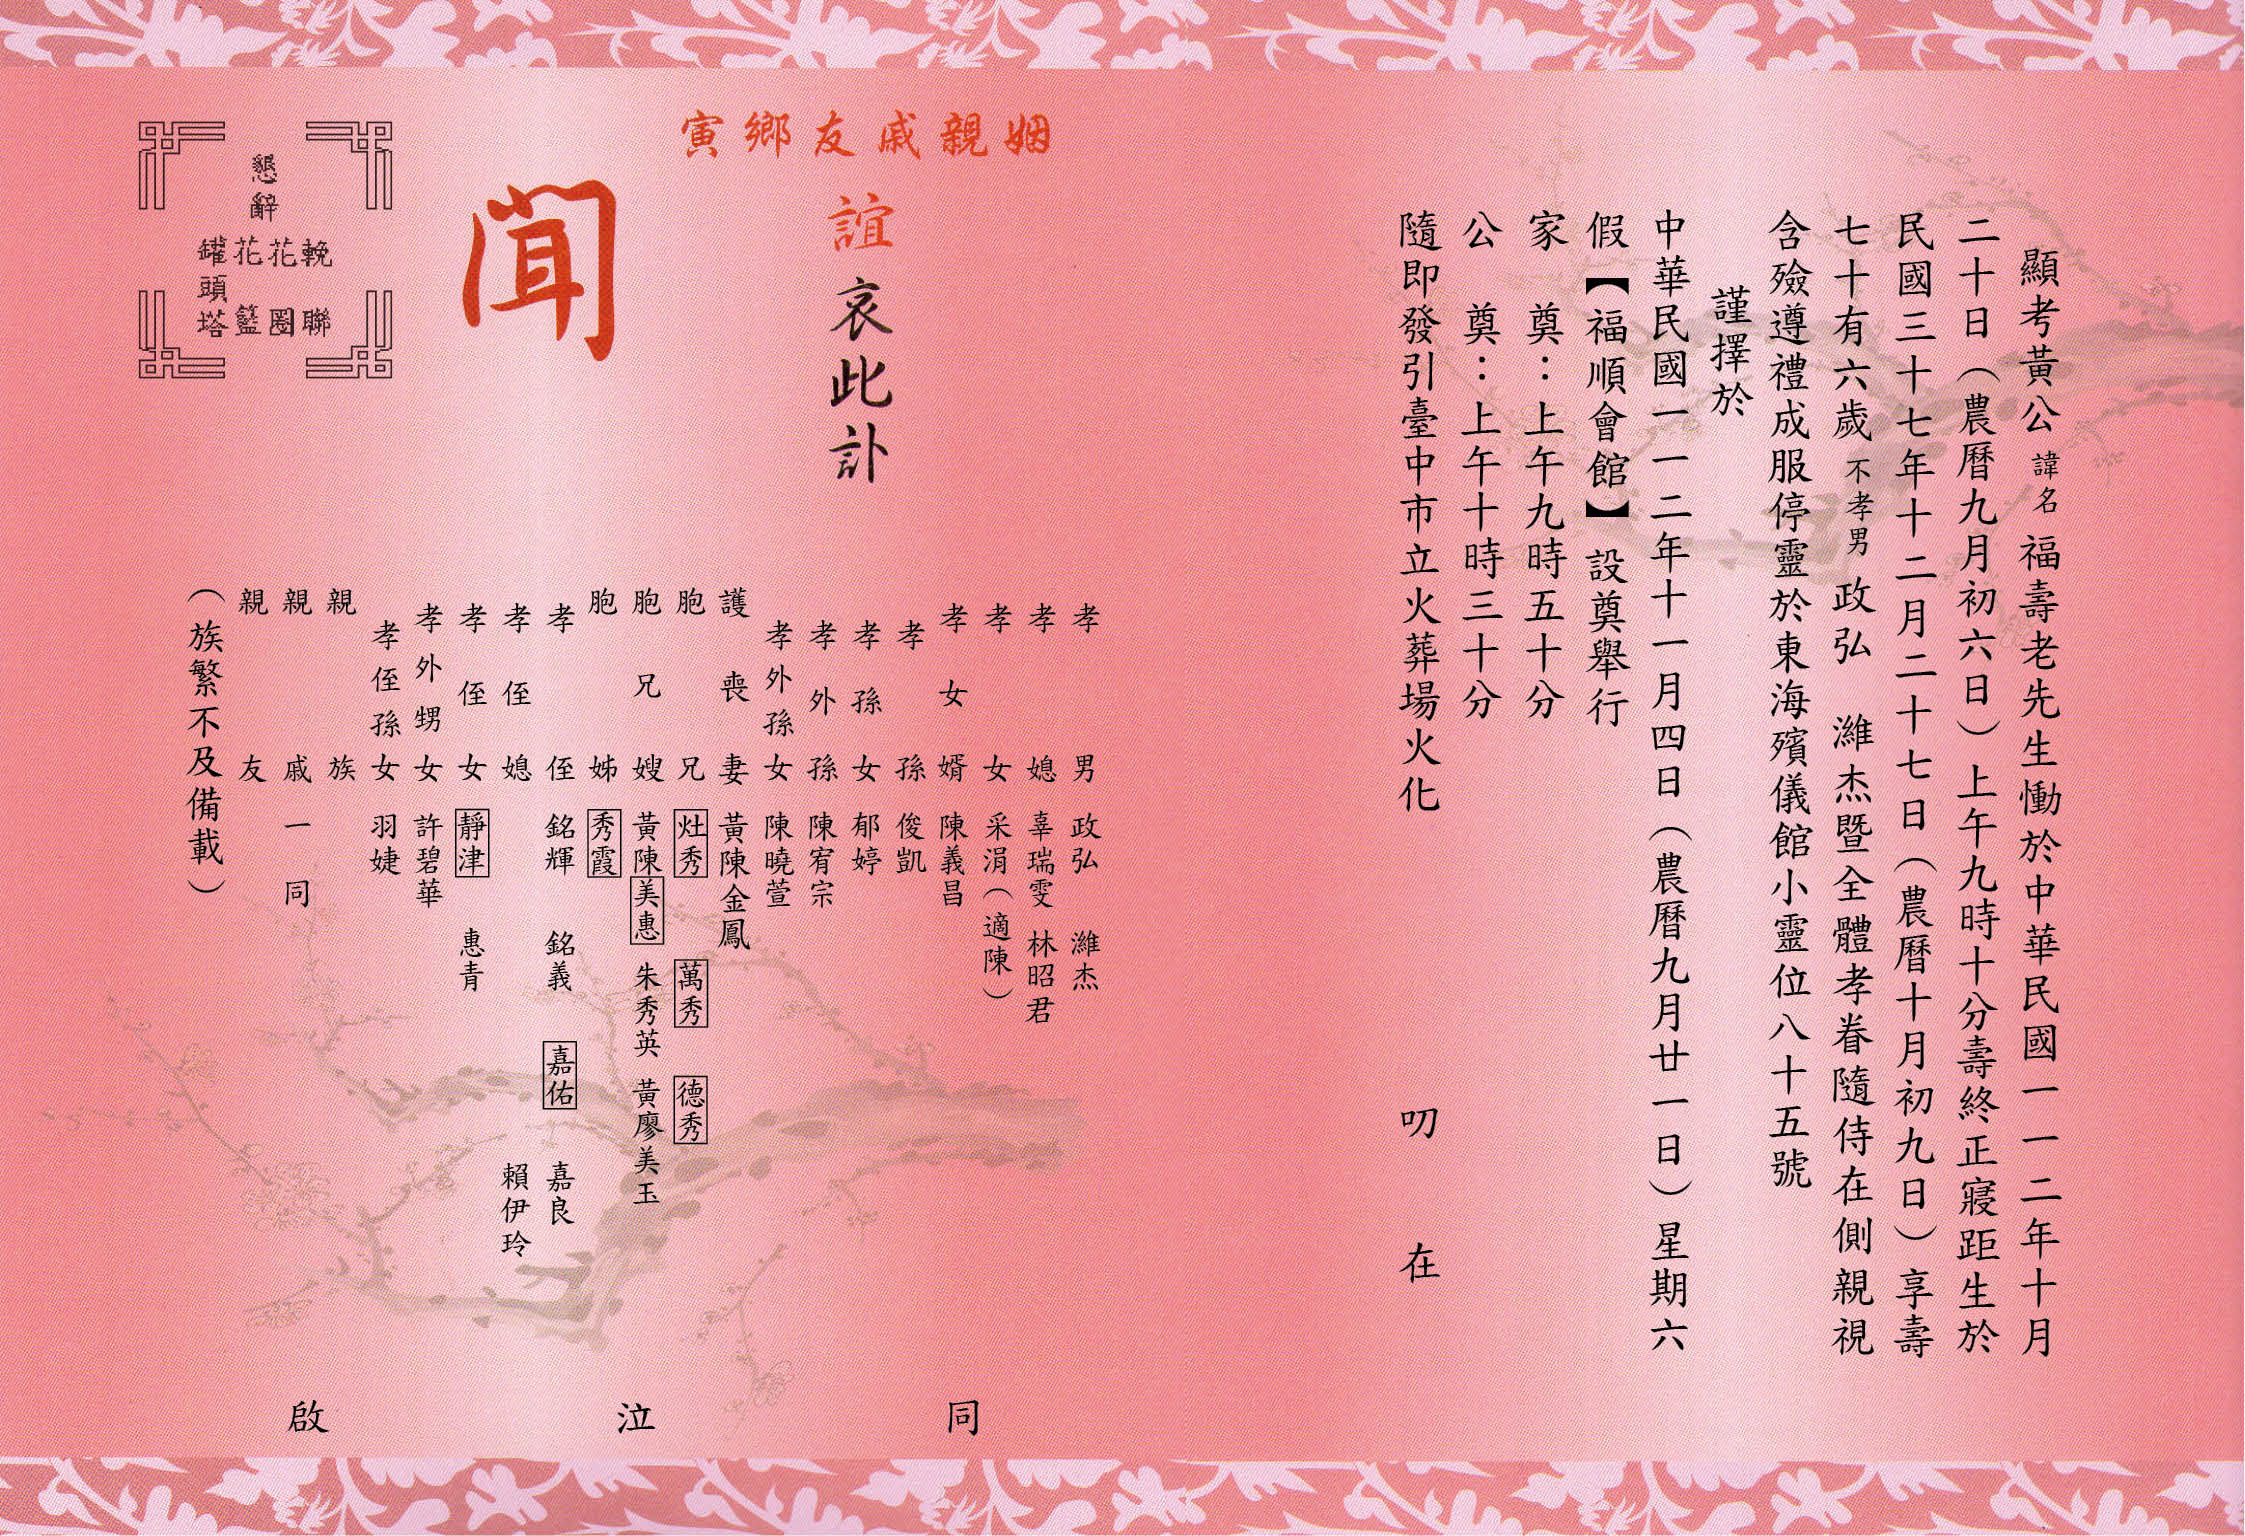 顯考黃公諱名福壽老先生慟於中華民國一一二年十月
二十日（農曆九月初六日）上午九時十分壽終正寢距生於
民國三十七年十二月二十七日（農曆十月初九日）享壽
七十有六歲不孝男政弘 濰杰暨全體孝眷隨侍在側親視
含殮遵禮成服停靈於東海殯儀館小靈位八十五號
謹擇於
中華民國一一二年十一月四日（農曆九月廿一日）星期六
假【福順會館】設奠舉行
家 奠：上午九時五十分
公 奠：上午十時三十分
隨即發引臺中市立火葬場火化
叨 在
姻親戚友鄉寅
誼哀此訃
聞
懇辭
輓聯
花圈
花籃
罐頭塔
孝男 政弘 濰杰
孝媳 辜瑞雯 林昭君
孝女 采涓（適陳）
孝女婿 陳義昌
孝孫 俊凱
孝孫女 郁婷
孝外孫 陳宥宗
孝外孫女 陳曉萱
護喪妻 黃陳金鳳
胞兄 灶秀 萬秀 德秀
胞兄嫂 黃陳美惠 朱秀英 黃廖美玉
胞姊 秀霞
孝侄 銘輝 銘義 嘉佑 嘉良
孝侄媳 賴伊玲
孝侄女 靜津 惠青
孝外甥女 許碧華
孝侄孫女 羽婕
親族
親戚一同
親友
（族繁不及備載）
同泣啟